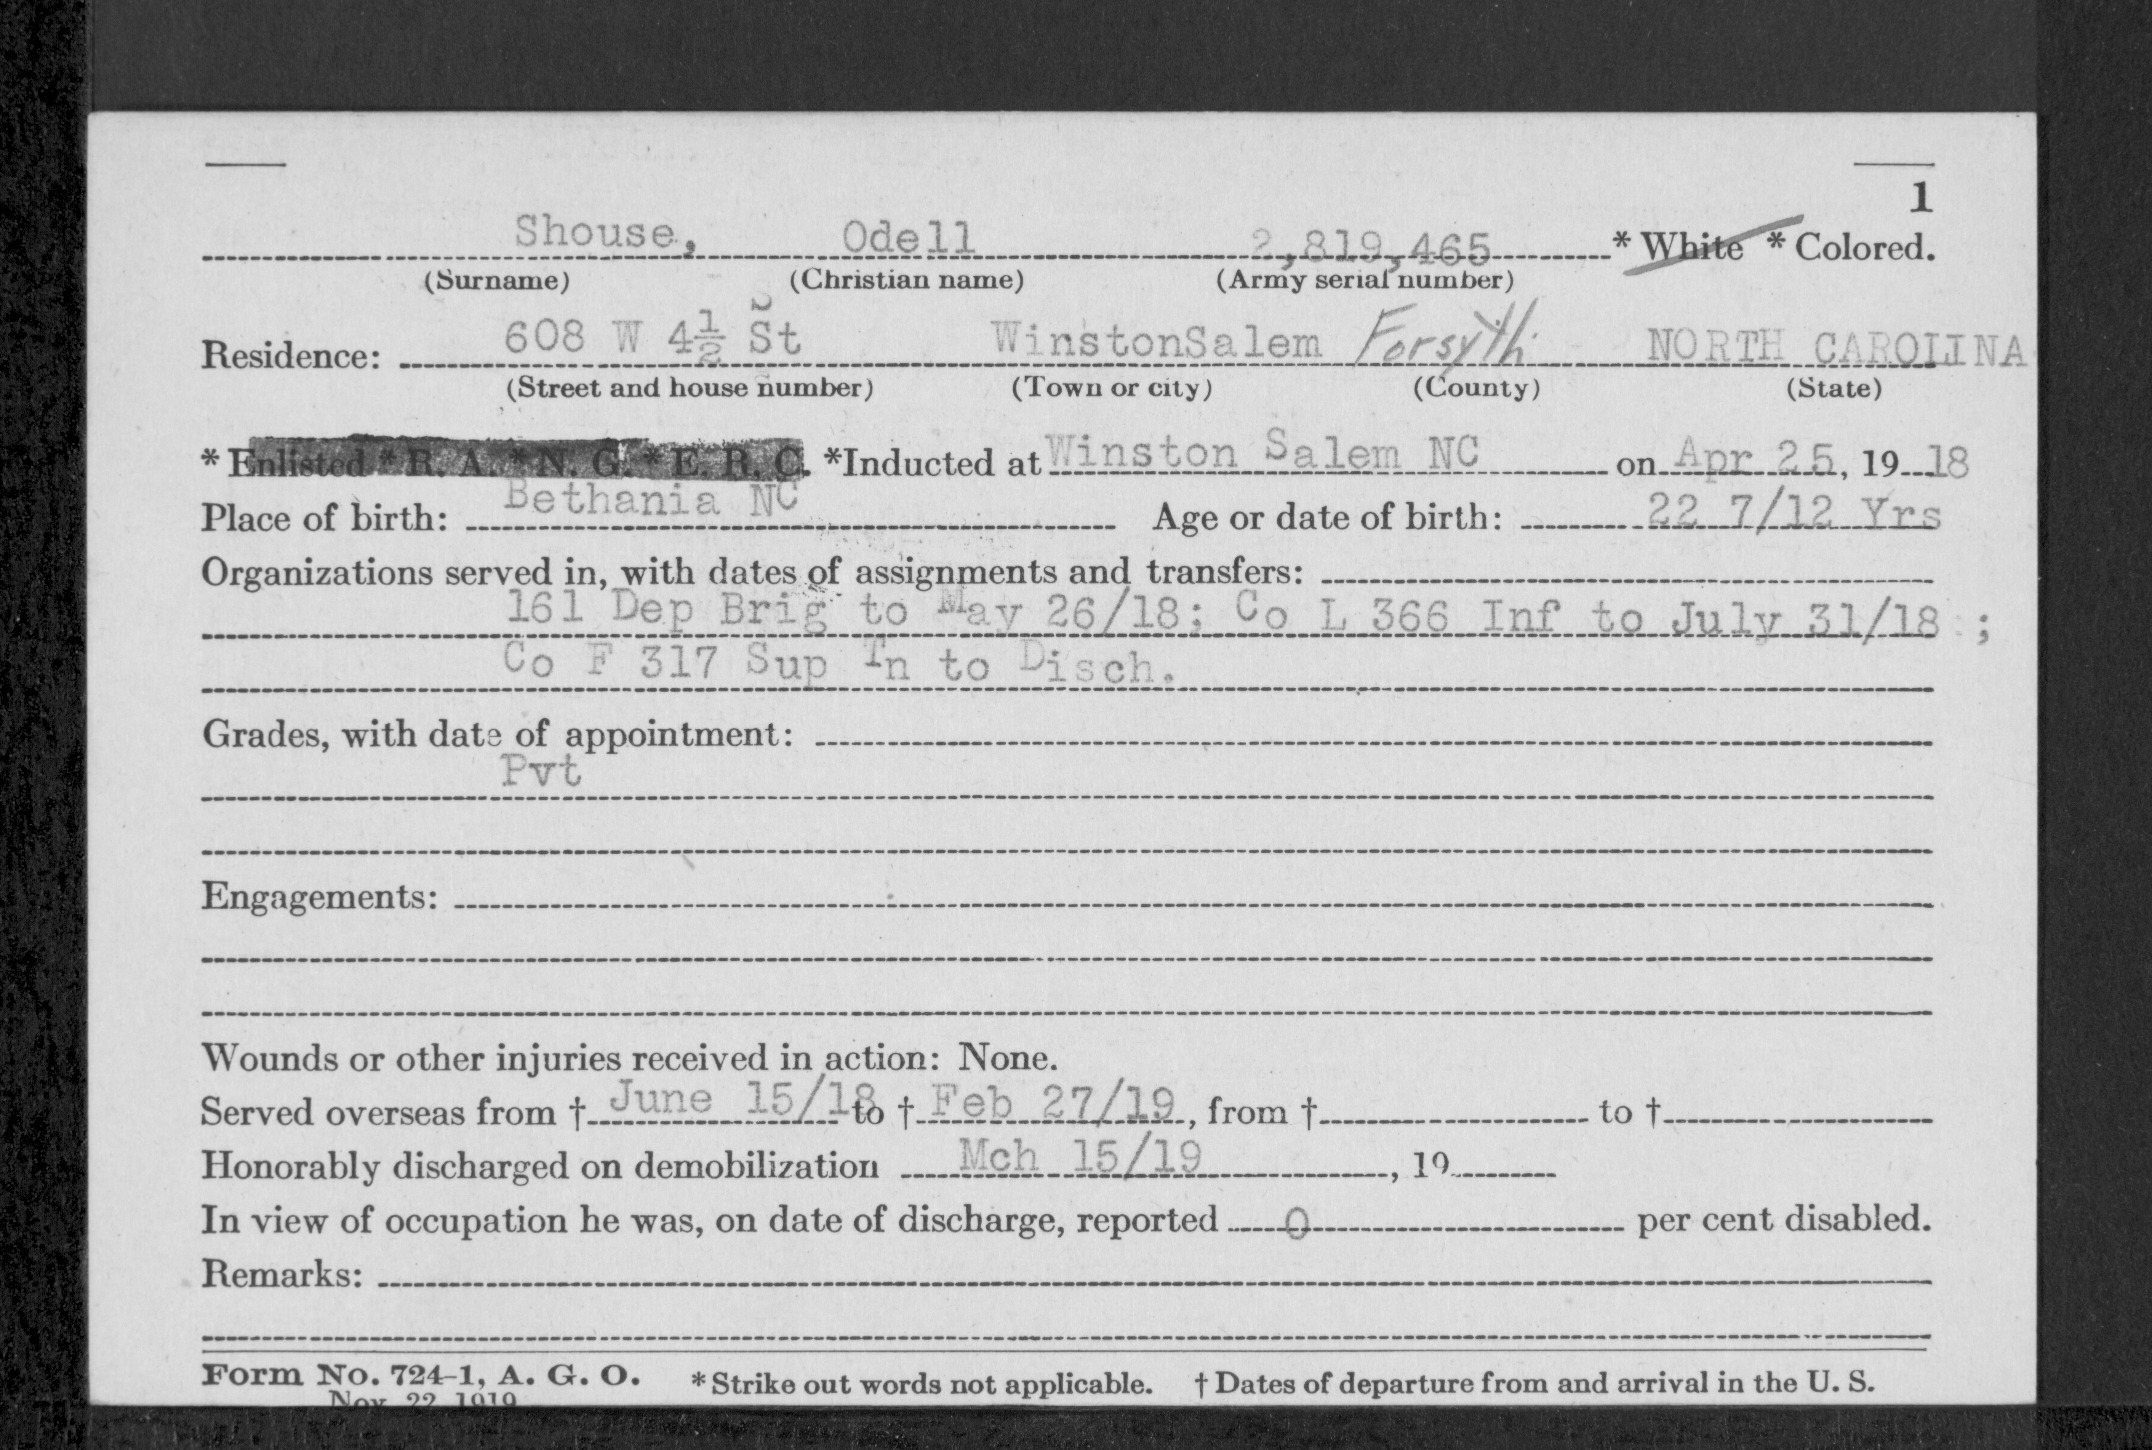 1
Shouse, Odell 2,819,465 * White * Colored.
(Surname) (Christian name) (Army serial number)
Residence: 608 W 4½ St WinstonSalem Forsyth NORTH CAROLINA
(Street and house number) (Town or city) (County) (State)
* Enlisted * R. A. * N. G. * E. R. C. *Inducted at Winston Salem NC on Apr 25, 19 18
Place of birth: Bethania NC Age or date of birth: 22 7/12 Yrs
Organizations served in, with dates of assignments and transfers:
161 Dep Brig to May 26/18; Co L 366 Inf to July 31/18 ;
Co F 317 Sup Tn to Disch.
Grades, with date of appointment:
Pvt
Engagements:
Wounds or other injuries received in action: None.
Served overseas from † June 15/18 to † Feb 27/19, from † to †
Honorably discharged on demobilization Mch 15/19, 19
In view of occupation he was, on date of discharge, reported 0 per cent disabled.
Remarks:
Form No. 724-1, A. G. O. * Strike out words not applicable. † Dates of departure from and arrival in the U. S.
Nov. 22, 1919